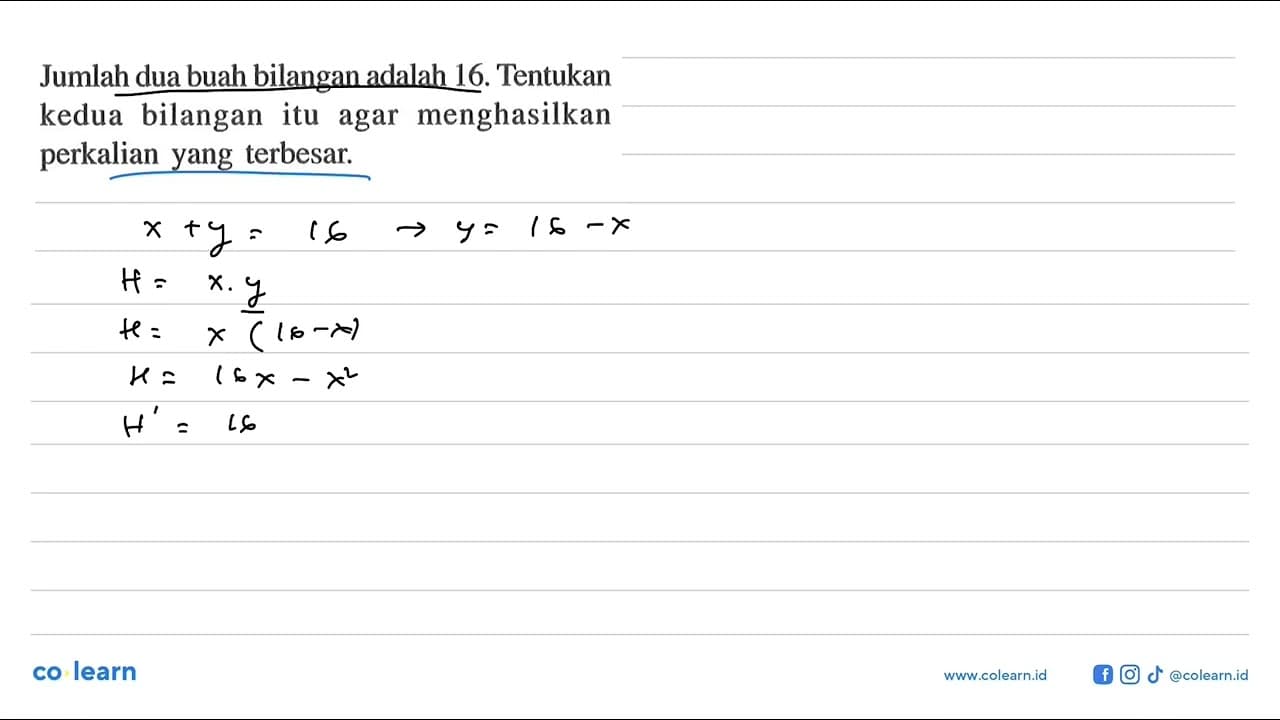 Jumlah dua buah bilangan adalah 16. Tentukan
kedua bilangan itu agar menghasilkan
perkalian yang terbesar.
x + y = 16 → y = 16 - x
H = x . y
H = x (16 - x)
H = 16x - x²
H' = 16
co learn
www.colearn.id @colearn.id